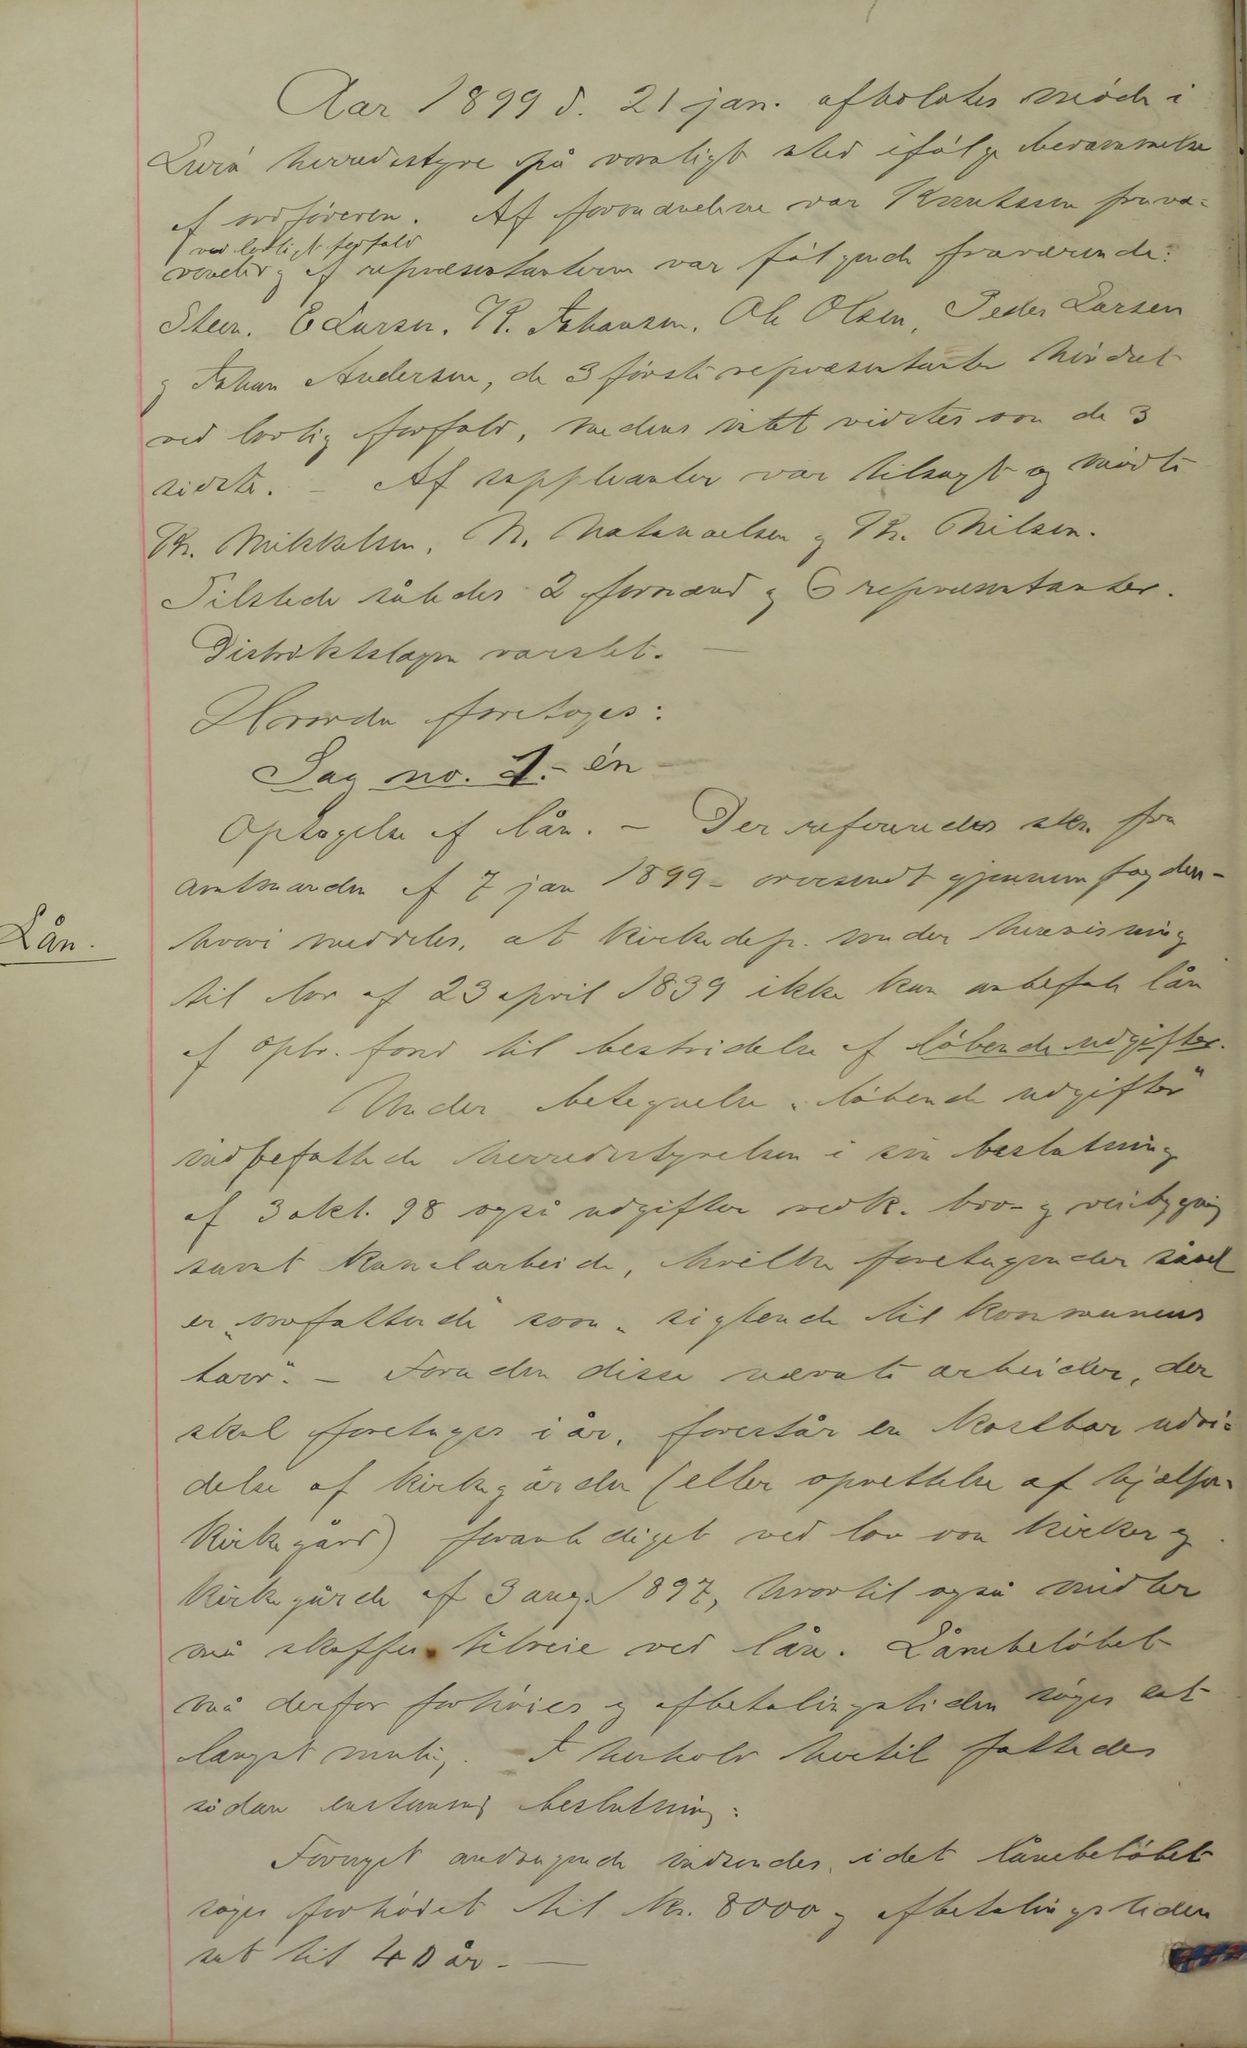 Aar 1899 d. 21 jan. afholdtes møde i
Lurø herredsstyre på vanligt sted ifølge berammelse
af ordføreren. Af formændene var Knutssen fravæ-
ved lovligt forfald
rende og af repræsentanterne var følgende fraværende:
Steen, E Larsen, K. Johansen, Ole Olsen, Peder Larsen
og Johan Andersen, de 3 første repræsentanter hindret
ved lovlig forfald, medens intet vidstes om de 3
sidste. – Af suppleanter var tilsagt og mødte
Kr. Mikkelsen, N. Natanaelsen og Kr. Nilsen.
Tilstede således 2 formænd og 6 repræsentanter.
Distriktslægen varslet. –
Hvorda foretoges:
Sag no. 1. – én –
Optagelse af lån. – Der refereredes skr. fra
amtmanden af 7 jan 1899 – oversendt gjennem fogden –
Lån.
hvori meddeles, at kirkedep. under henvisning
til lov af 23 april 1839 ikke kan anbefale lån
af opl. fond til bestridelse af løbende udgifter.
Under betegnelse "løbende udgifter"
indbefattede herredsstyrelsen i sin beslutning
af 3 okt. 98 også udgifter vedk. bro- og veibygning
samt kanalarbeide, hvilke foretagender såvel
er "omfattende" som "sigtende til kommunens
tarv". – Foruden disse nævnte arbeider, der
skal foretages i år, forestår en kostbar udvi-
delse af kirkegården (eller oprettelse af hjælpe-
kirkegård) foranlediget ved lov om kirker og
kirkegårde af 3 aug. 1897, hvortil også midler
må skaffes tilveie ved lån. Lånebeløbet
må derfor forhøies og afbetalingstiden søges sat
længst mulig. I henhold hertil fattedes
sådan enstemmig beslutning:
Fornyet andragende indsendes, idet lånebeløbet
søges forhøiet til kr. 8000 og afbetalingstiden
sat til 40 år. –